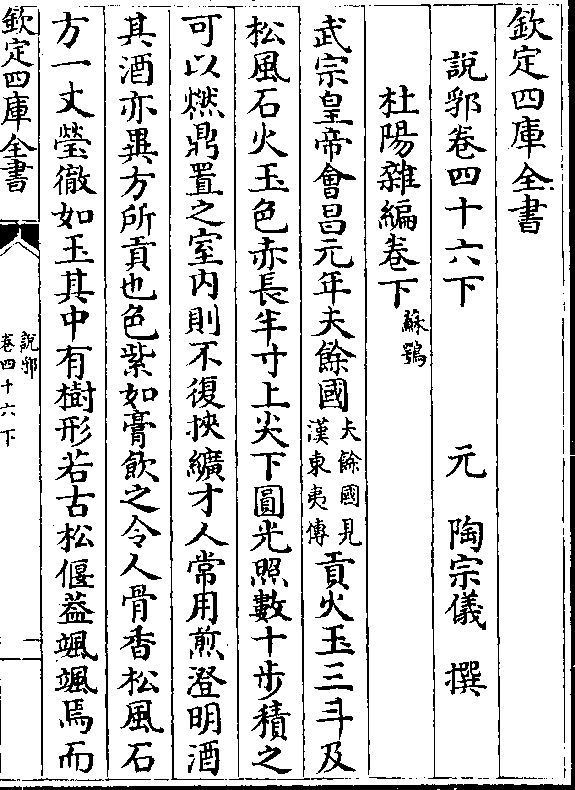 欽定四庫全書
說郛卷四十六下
元 陶宗儀 撰
杜陽雜編卷下 蘇鶚
武宗皇帝會昌元年夫餘國夫餘國見漢東夷傳貢火玉三斗及
松風石火玉色赤長半寸上尖下圓光照數十步積之
可以燃鼎置之室內則不復挾纊才人常用煎澄明酒
其酒亦異方所貢也色紫如膏飲之令人骨香松風石
方一丈瑩徹如玉其中有樹形若古松偃葢颯颯焉而
欽定四庫全書
說郛
卷四十六下
一